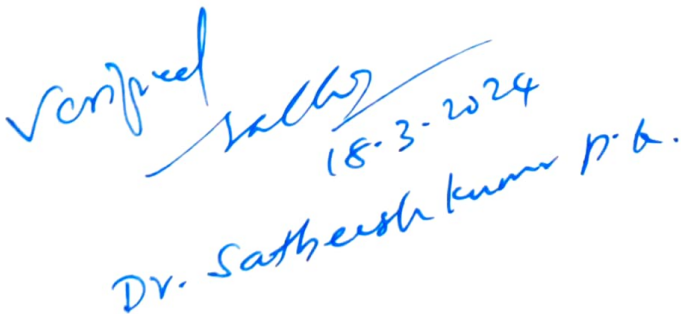 Verified
18.3.2024
Dr. Satheesh kumar P.G.